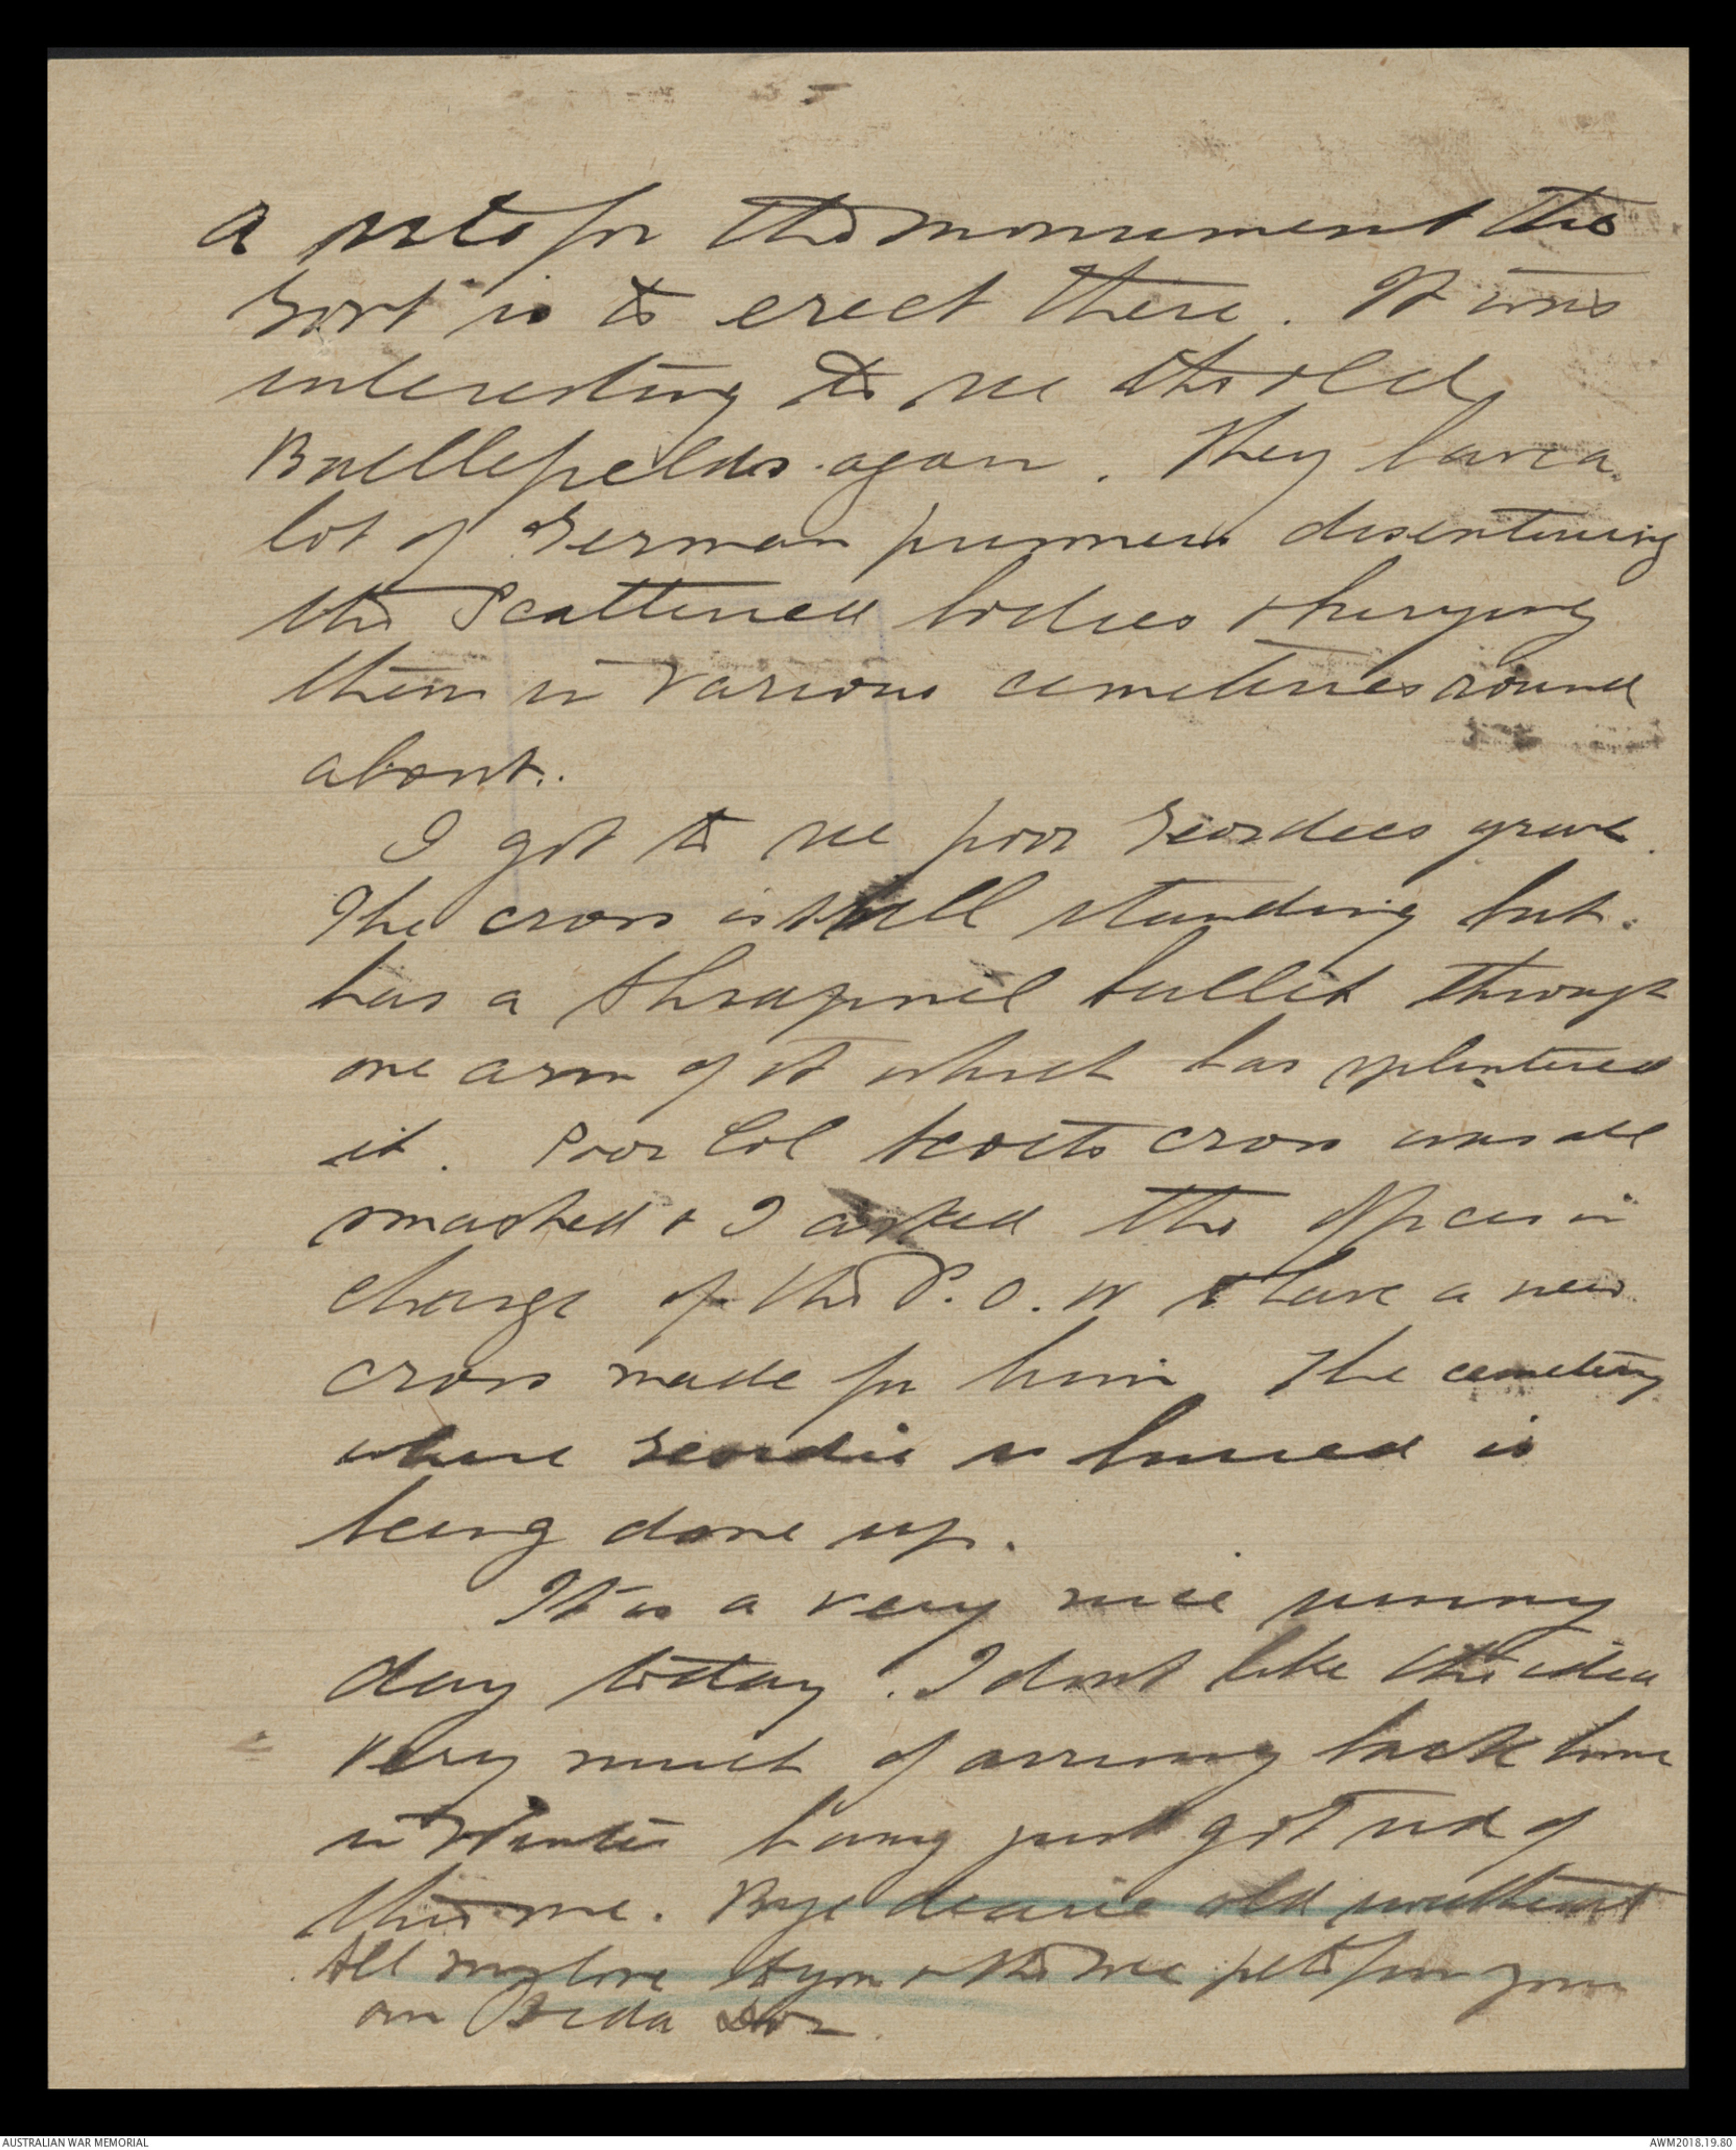 a site for the monument the
Govt is to erect there. It was
interesting to see the old
Battlefields again. They have a
lot of German prisoners disentering
the scattered bodies & burying
them in various cemeteries round
about.
I got to see poor Geordies grave.
The cross is still standing but
has a shrapnel bullet through
one arm of it which has splintered
it. Poor Col Scotts cross was all
smashed & I asked the Officer in
charge of the P.O.W to have a new
cross made for him The cemetery
where Geordie is buried is
being done up.
It is a very nice sunny
day today. I dont like the idea
very much of arriving back home
in Winter having just got rid of
this one. Bye dearie old sweetheart
All my love to you & the wee pet from your
own
AUSTRALIAN WAR MEMORIAL
AWM2018.19.80